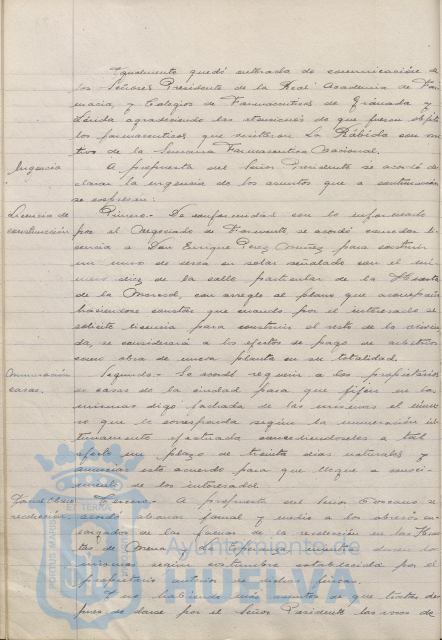 Igualmente quedó enterada de comunicación de
los Señores Presidente de la Real Academia de Far
macia, y Colegios de Farmaceuticos de Granada y
Lérida agradeciendo las atenciones de que fueron objeto
los farmaceuticos que visitaron La Rábida con mo
tivo de la Semana Farmaceutica Nacional.
Urgencia
A propuesta del Señor Presidente se acordó de
clarar la urgencia de los asuntos que a continuación
se expresan:
Licencia de construcción
Primero.- De conformidad con lo informado
por el Negociado de Fomento se acordó conceder li
cencia a Don Enrique Perez Muñoz para construir
un muro de cerca en solar señalado con el nú
mero diez de la calle particular de la Huerta
de la Merced, con arreglo al plano que acompaña
haciendose constar que cuando por el interesado se
solicite licencia para construir el resto de la vivien
da, se considerará a los efectos de pago de arbitrios
como obra de nueva planta en su totalidad.
Numeración casas.
Segundo.- Se acordó requerir a los propietarios
de casas de la ciudad para que fijen en las
mismas digo fachada de las mismas el núme
ro que le corresponda según la numeración úl
timamente efectuada concediendoseles a tal
efecto un plazo de treinta dias naturales y
anunciar este acuerdo para que llegue a conoci
miento de los interesados.
Tercero.- A propuesta del Señor se
acordó abonar jornal y medio a los obreros en
cargados de las faenas de la en las Huer
tas de Mena y durante los
mismos según costumbre establecida por el
propietario anterior de dichas fincas.
Y no habiendo más asuntos de que tratar des
pues de darse por el Señor Presidente las voces de
PORTUS MARIS ET TERRAE
Ayuntamiento de
HUELVA